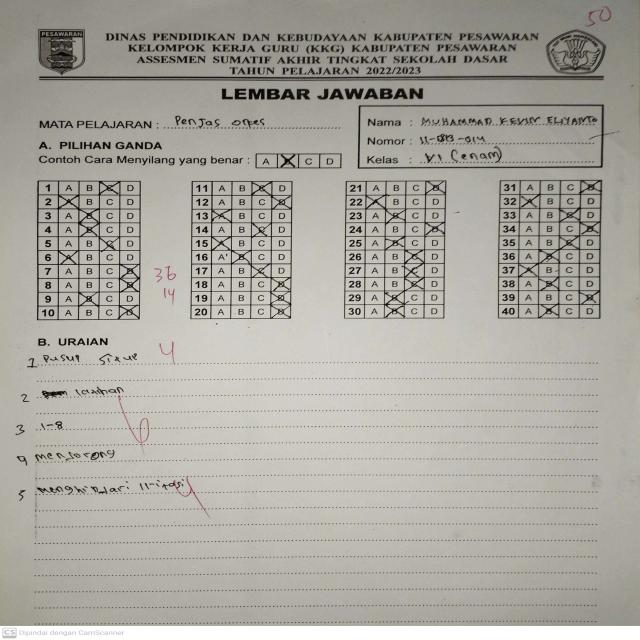 50
PESAWARAN
DINAS PENDIDIKAN DAN KEBUDAYAAN KABUPATEN PESAWARAN
KELOMPOK KERJA GURU (KKG) KABUPATEN PESAWARAN
ASSESMEN SUMATIF AKHIR TINGKAT SEKOLAH DASAR
TAHUN PELAJARAN 2022/2023
LEMBAR JAWABAN
MATA PELAJARAN : Penjas orkes
Nama : MUHAMMAD KEVIN ELIYANTO
Nomor : 11-013-014
Kelas : VI (enam)
A. PILIHAN GANDA
Contoh Cara Menyilang yang benar : A B C D
1 A B C D 11 A B C D 21 A B C D 31 A B C D
2 A B C D 12 A B C D 22 A B C D 32 A B C D
3 A B C D 13 A B C D 23 A B C D 33 A B C D
4 A B C D 14 A B C D 24 A B C D 34 A B C D
5 A B C D 15 A B C D 25 A B C D 35 A B C D
6 A B C D 16 A B C D 26 A B C D 36 A B C D
7 A B C D 17 A B C D 27 A B C D 37 A B C D
8 A B C D 18 A B C D 28 A B C D 38 A B C D
9 A B C D 19 A B C D 29 A B C D 39 A B C D
10 A B C D 20 A B C D 30 A B C D 40 A B C D
36
14
B. URAIAN
1 Pusup Situp 4
2 lauhan
3 1-8
4 menjorong
5 menghindari
CS Dipindai dengan CamScanner